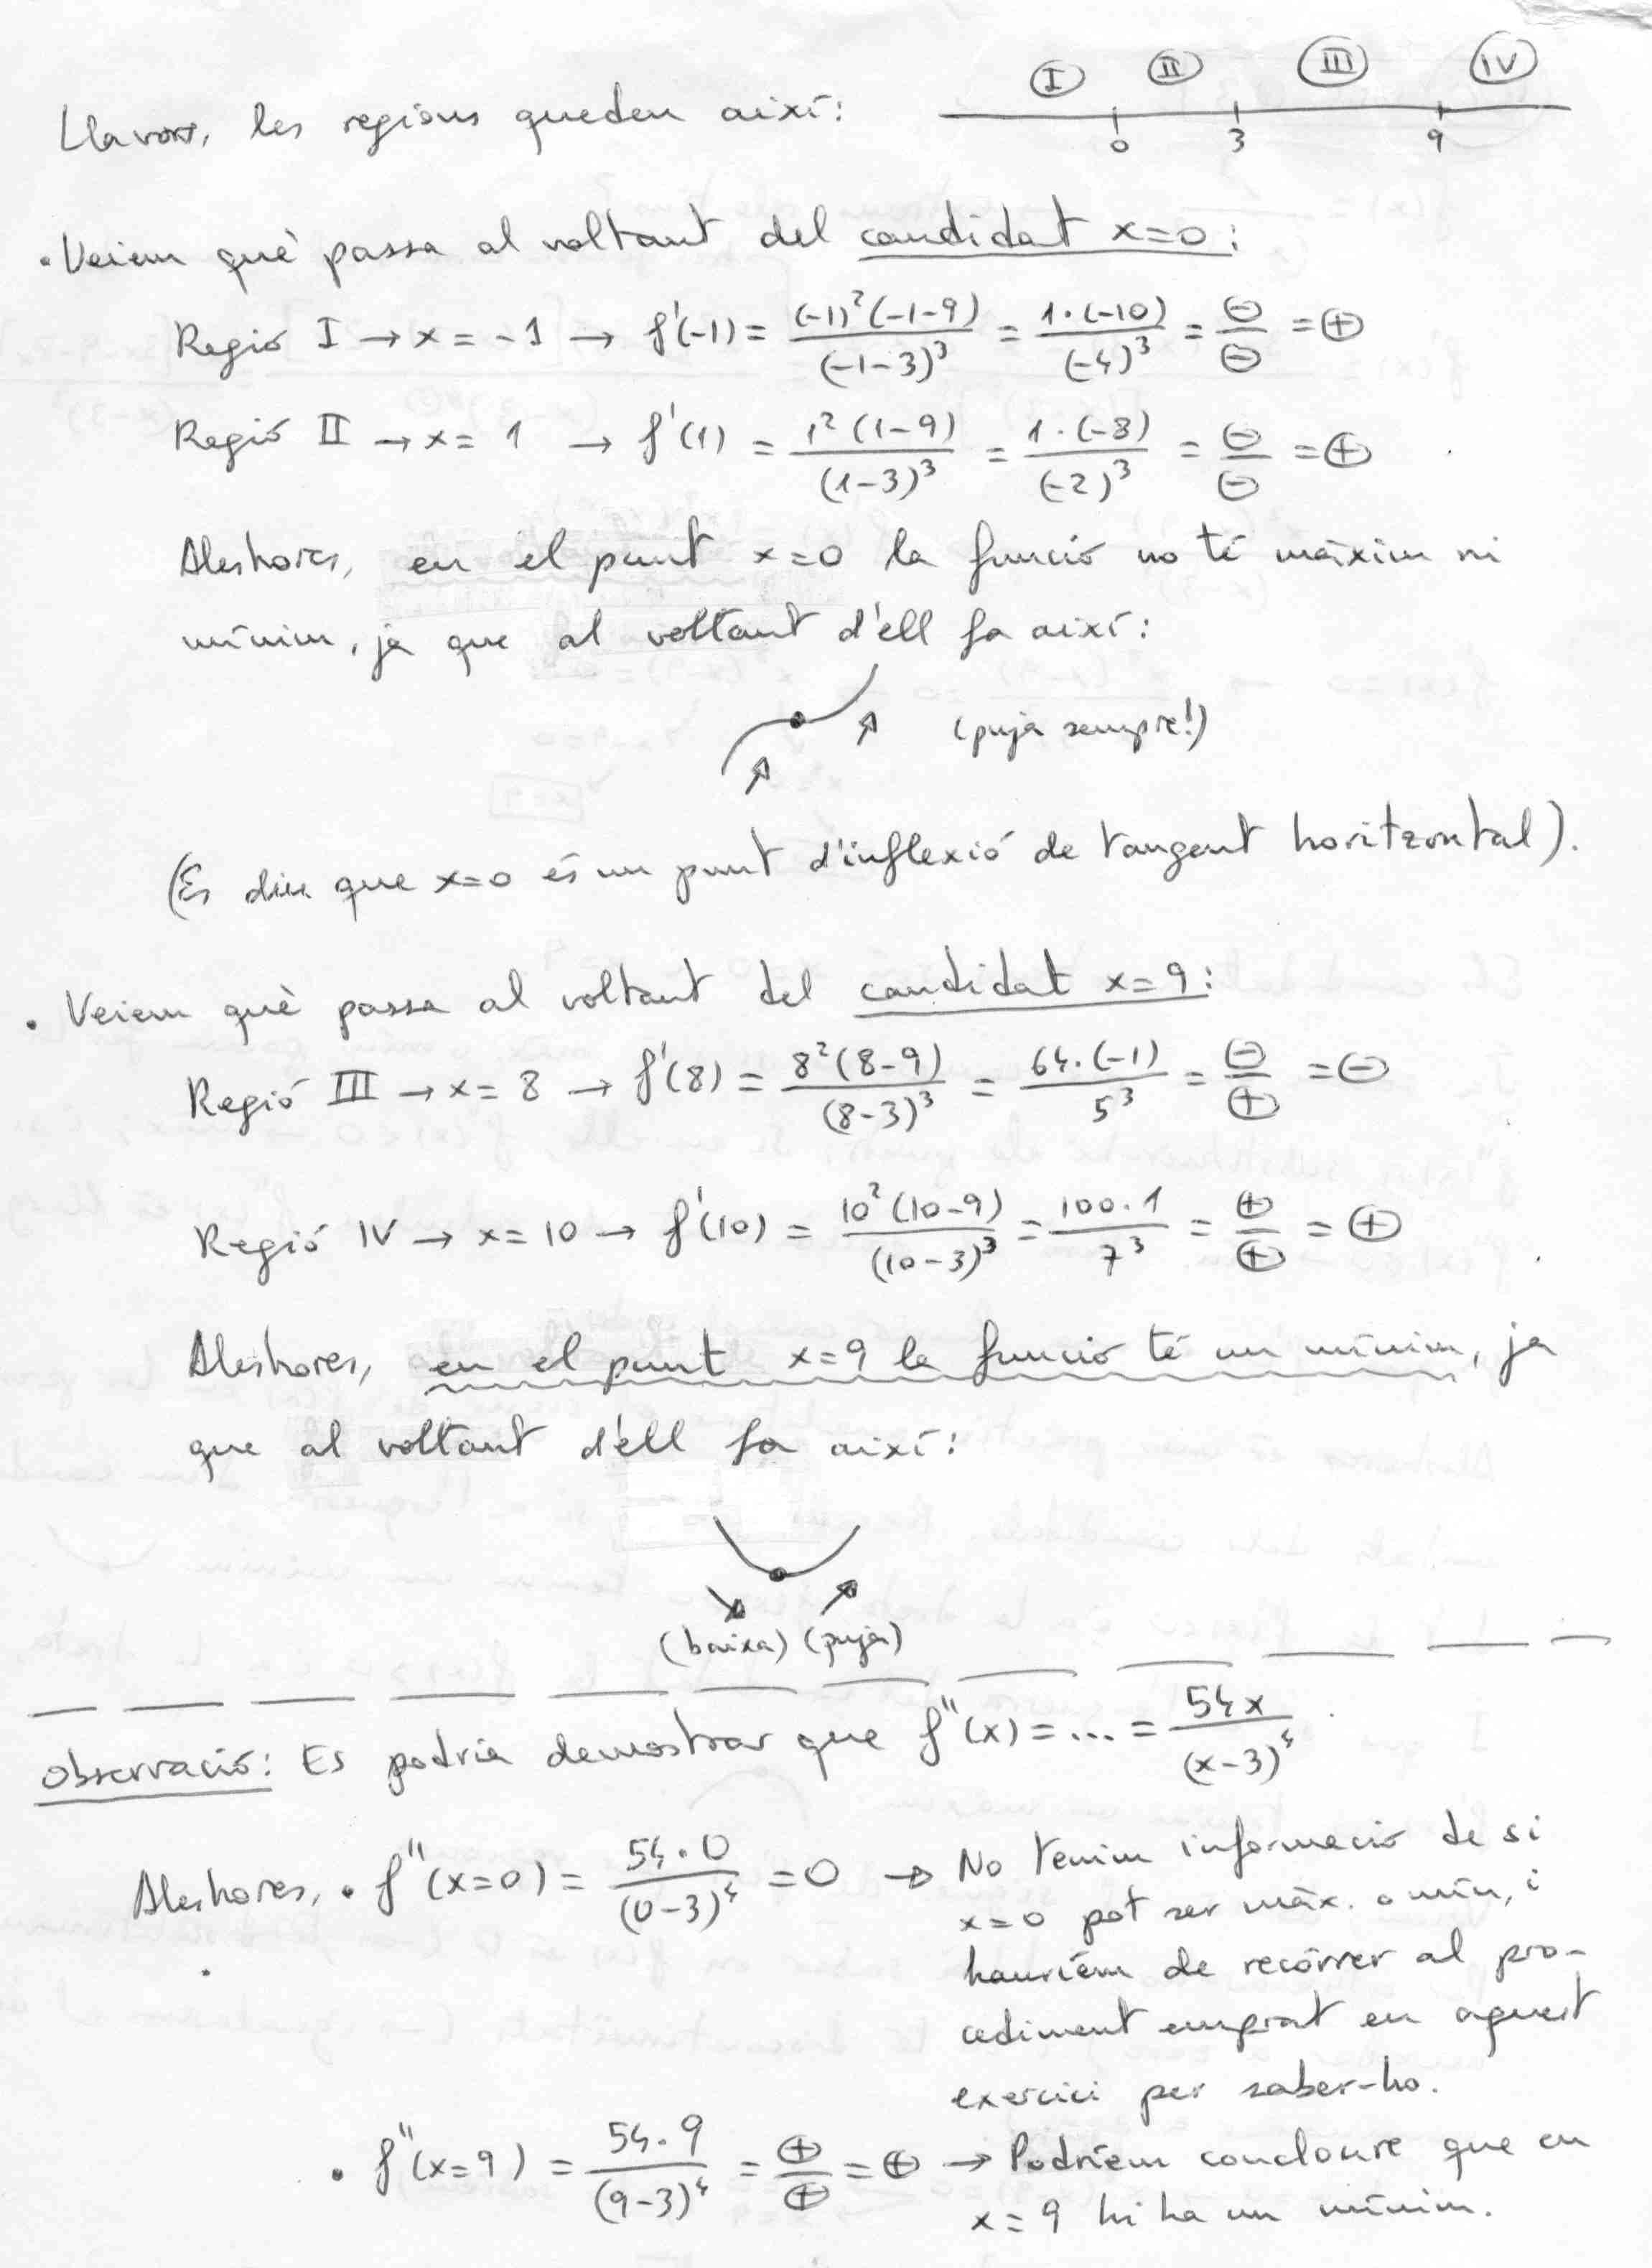 Llavors, les regions queden així:
I II III IV
0 3 9
• Veiem què passa al voltant del candidat x=0:
Regió I → x = -1 → f'(-1) = (-1)²(-1-9)/(-1-3)³ = 1·(-10)/(-4)³ = ⊖/⊖ = ⊕
Regió II → x = 1 → f'(1) = 1²(1-9)/(1-3)³ = 1·(-8)/(-2)³ = ⊖/⊖ = ⊕
Aleshores, en el punt x=0 la funció no té màxim ni
mínim, ja que al voltant d'ell fa així:
(puja sempre!)
(Es diu que x=0 és un punt d'inflexió de tangent horitzontal).
• Veiem què passa al voltant del candidat x=9:
Regió III → x = 8 → f'(8) = 8²(8-9)/(8-3)³ = 64·(-1)/5³ = ⊖/⊕ = ⊖
Regió IV → x = 10 → f'(10) = 10²(10-9)/(10-3)³ = 100·1/7³ = ⊕/⊕ = ⊕
Aleshores, en el punt x=9 la funció té un mínim, ja
que al voltant d'ell fa així:
(baixa) (puja)
Observació: Es podria demostrar que f''(x) = ... = 54x/(x-3)⁴
Aleshores, • f''(x=0) = 54·0/(0-3)⁴ = 0 → No tenim informació de si
x=0 pot ser màx. o mín, i
hauríem de recórrer al pro-
cediment emprat en aquest
exercici per saber-ho.
• f''(x=9) = 54·9/(9-3)⁴ = ⊕/⊕ = ⊕ → Podríem concloure que en
x=9 hi ha un mínim.